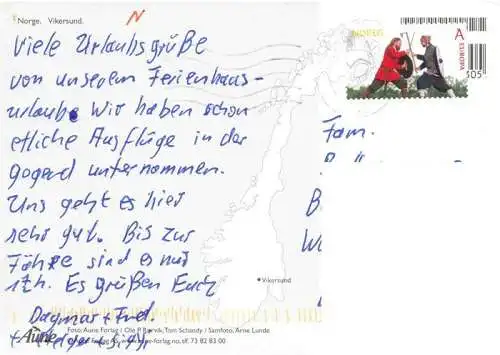 Norge. Vikersund.
N
Viele Urlaubsgrüße
von unserem Ferienhaus-
urlaub. Wir haben schon
etliche Ausflüge in der
gegend unternommen.
Uns geht es hier
sehr gut. Bis zur
Fähre sind es nur
1 h. Es grüßen Euch
Dagmar + Fred.
NOREG
A
EUROPA
505
Fam.
Vikersund
Aune
Foto: Aune Forlag / Ole P. Rørvik, Tom Schandy / Samfoto, Arne Lunde
tlf. 73 82 83 00